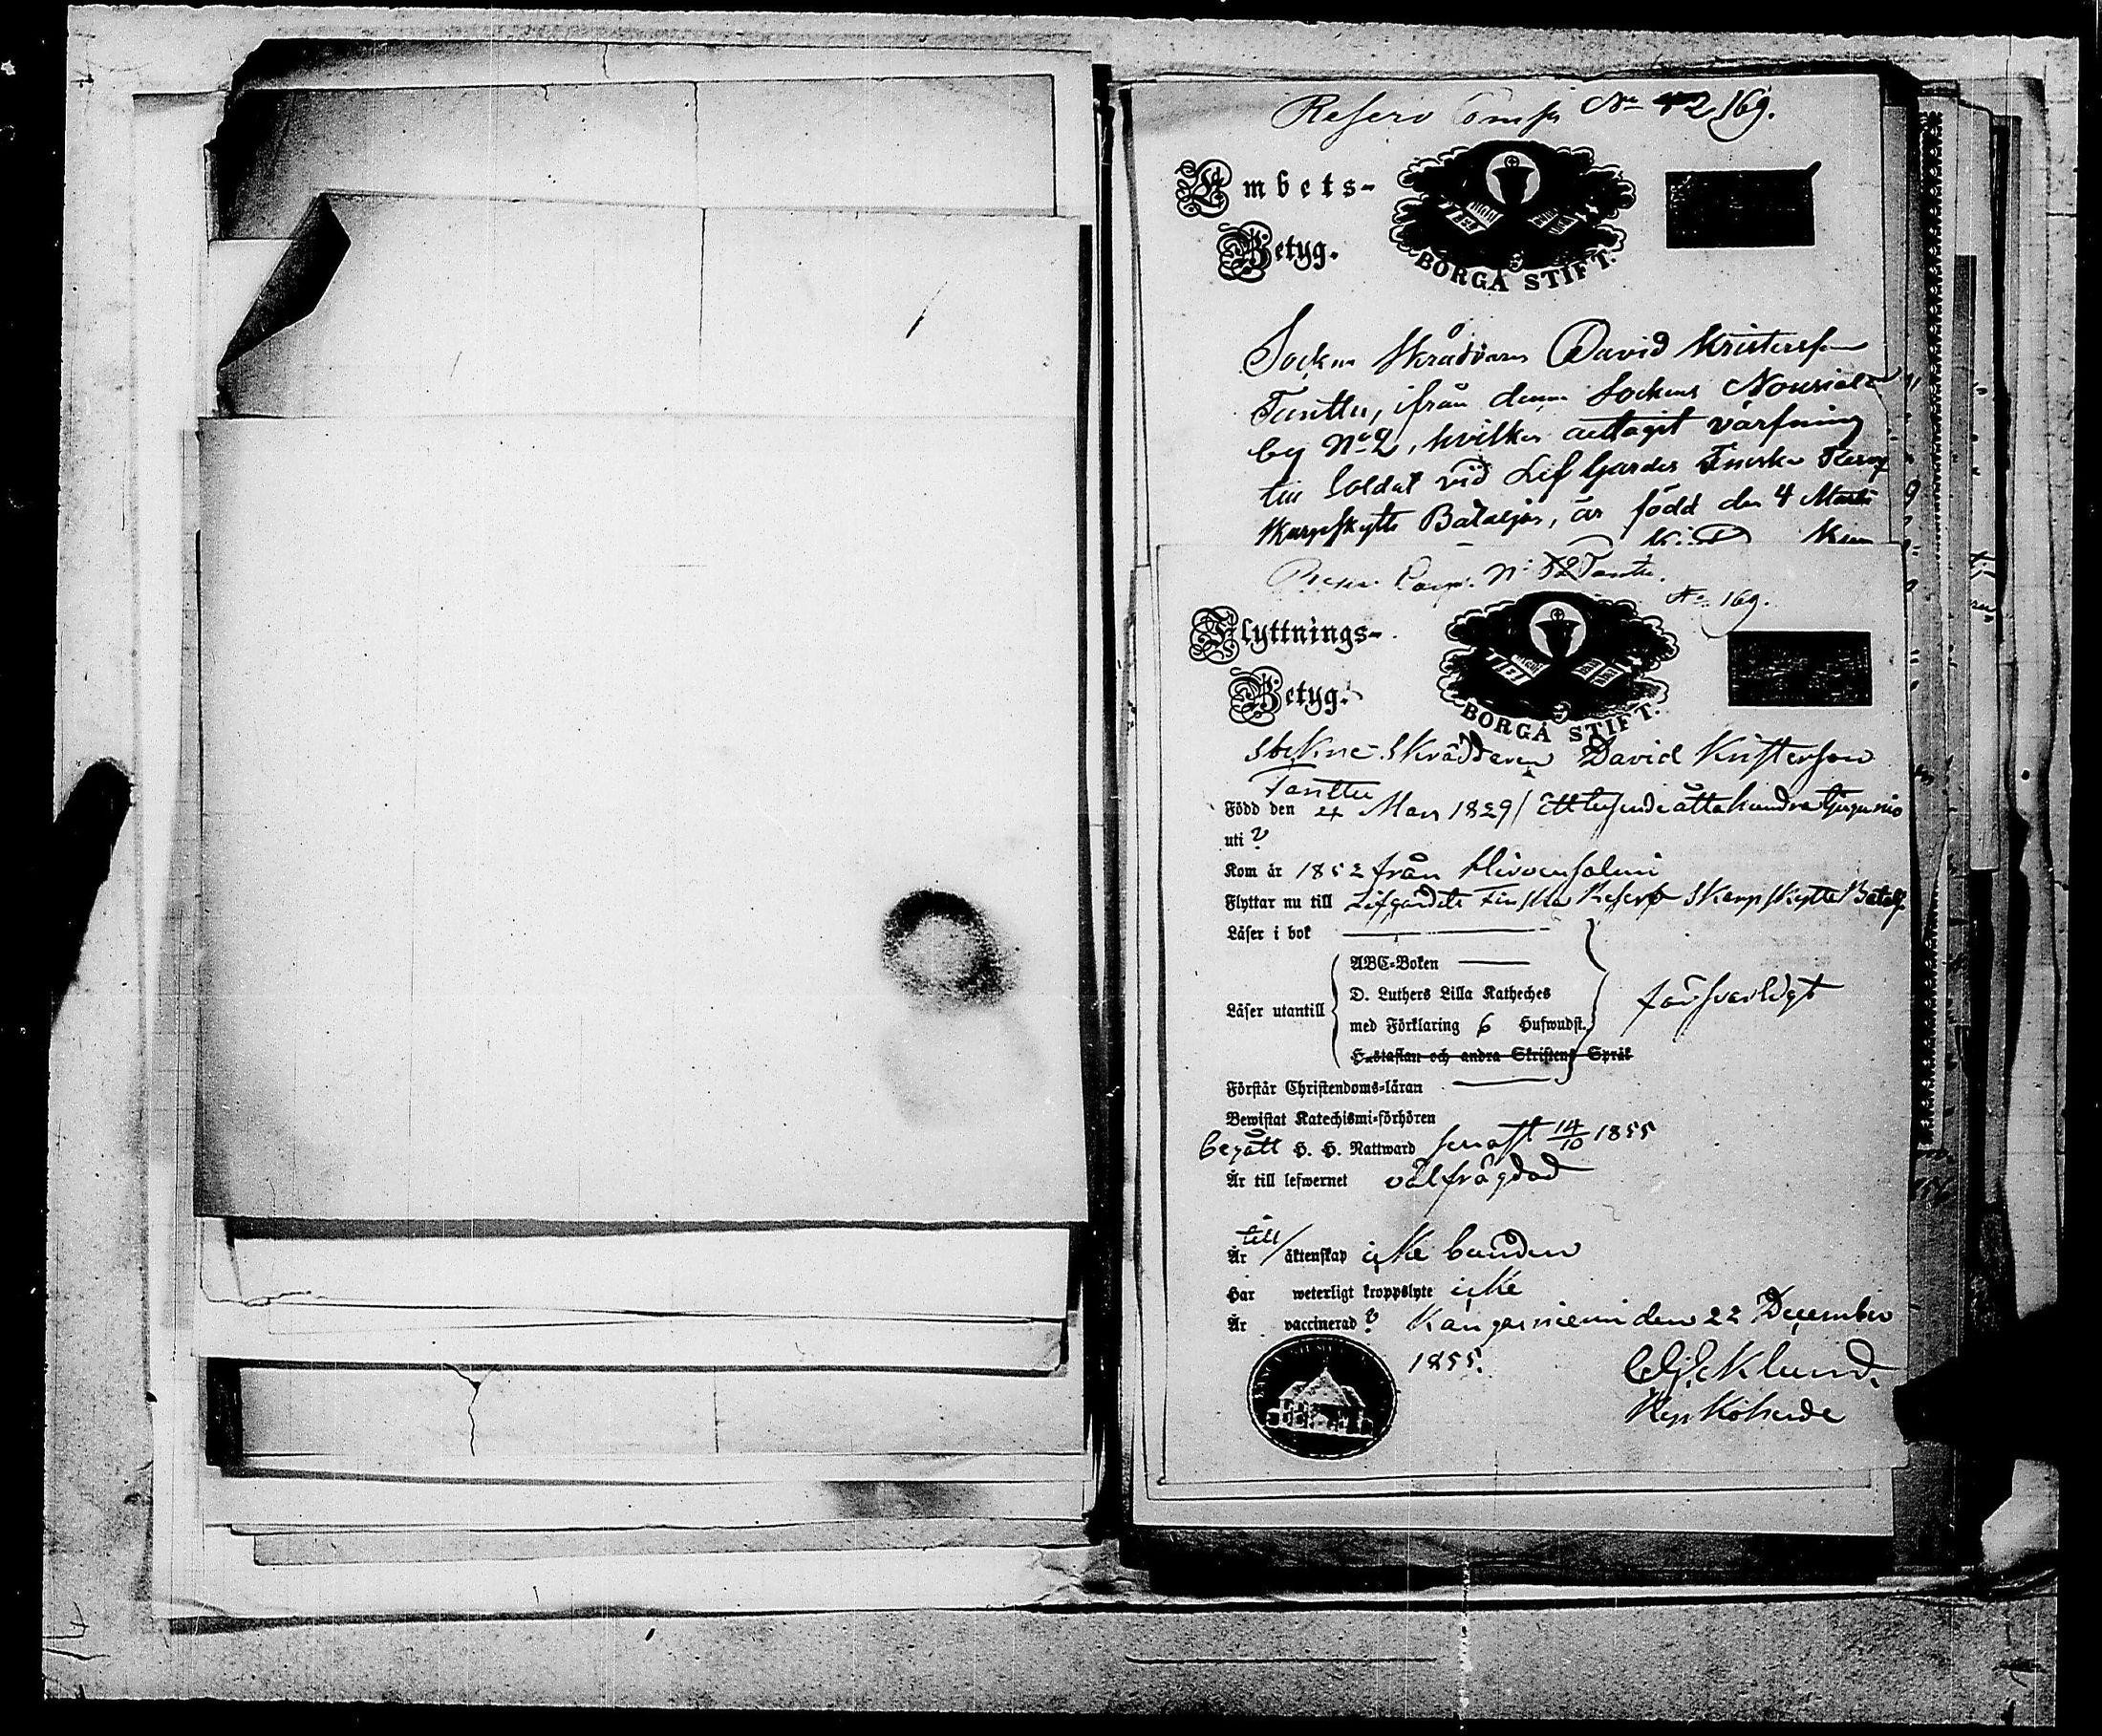 Reserv Comp No 42 169.
Embets-
Betyg.
BORGÅ STIFT.
Sockne Skräddaren David Kristersson
Tanttu, ifrån denna Sockens Nousiala
by No 2, hvilken antagit värfning
till Soldat vid Lif Gardes Finska Reserv
Skarpskytte Bataljon, är född den 4 Martii
Reserv Comp. N: 52 Tanttu.
No 169.
Flyttnings-
Betyg.
BORGÅ STIFT.
Sockne Skräddaren David Kristersson
Tanttu
Född den 4 Mars 1829 / Ett tusende åtta hundra tjugunio
uti
Kom år 1852 från Hirvensalmi
Flyttar nu till Lifgardets Finska Reserv Skarpskytte Batalj.
Läser i bok
ABC-Boken
D. Luthers Lilla Katheches
Läser utantill
försvarligt
med Förklaring 6 Hufwudst.
Hustaflan och andra Skriftens Språk
Förstår Christendoms-läran
Bewistat Katechismi-förhören
begått H. H. Nattward senast 14/10 1855
Är till lefwernet välfrägdad
till
Är äktenskap icke bunden
Har weterligt kroppslyte icke
Är vaccinerad Kangasniemi den 22 December
1855.
Eklund.
Kyrkoherde